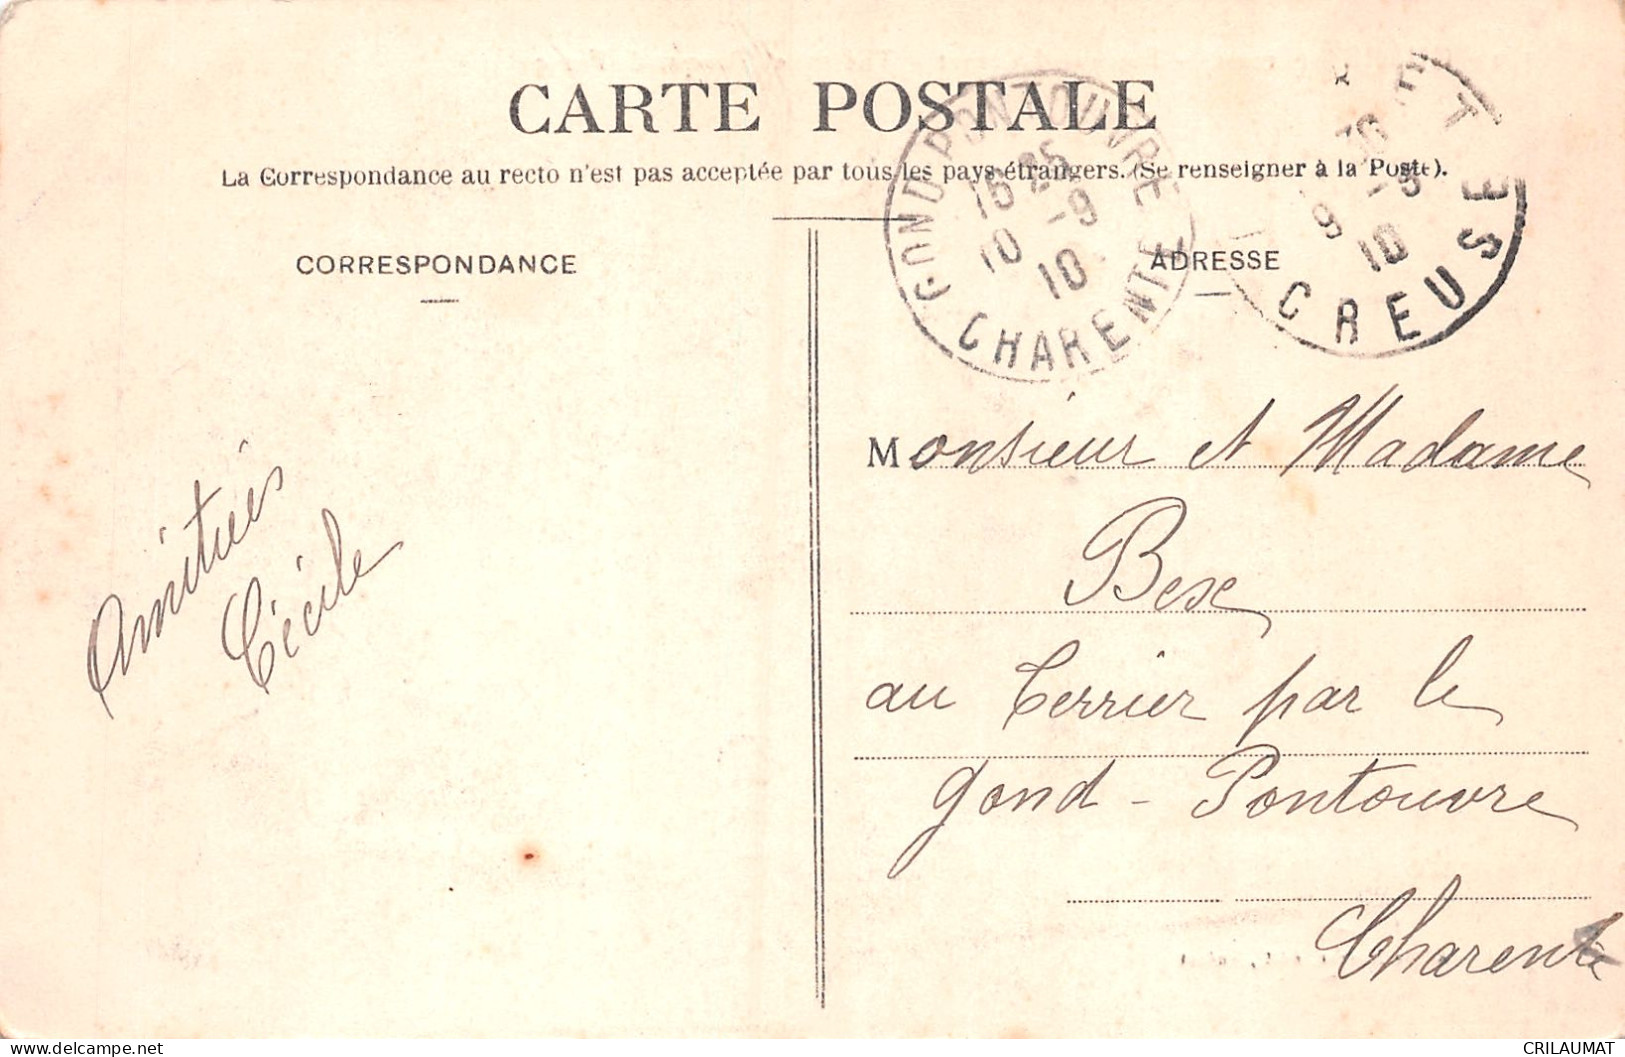 CARTE POSTALE
La Correspondance au recto n'est pas acceptée par tous les pays étrangers. (Se renseigner à la Poste).
CORRESPONDANCE
ADRESSE
GOND PONTOUVRE
16 25
10 -9
10
CHARENTE
9 -9
10
CREUSE
Amitiés
Cécile
Monsieur et Madame
Bex
au Terrier par le
Gond - Pontouvre
Charente
www.delcampe.net
CRILAUMAT